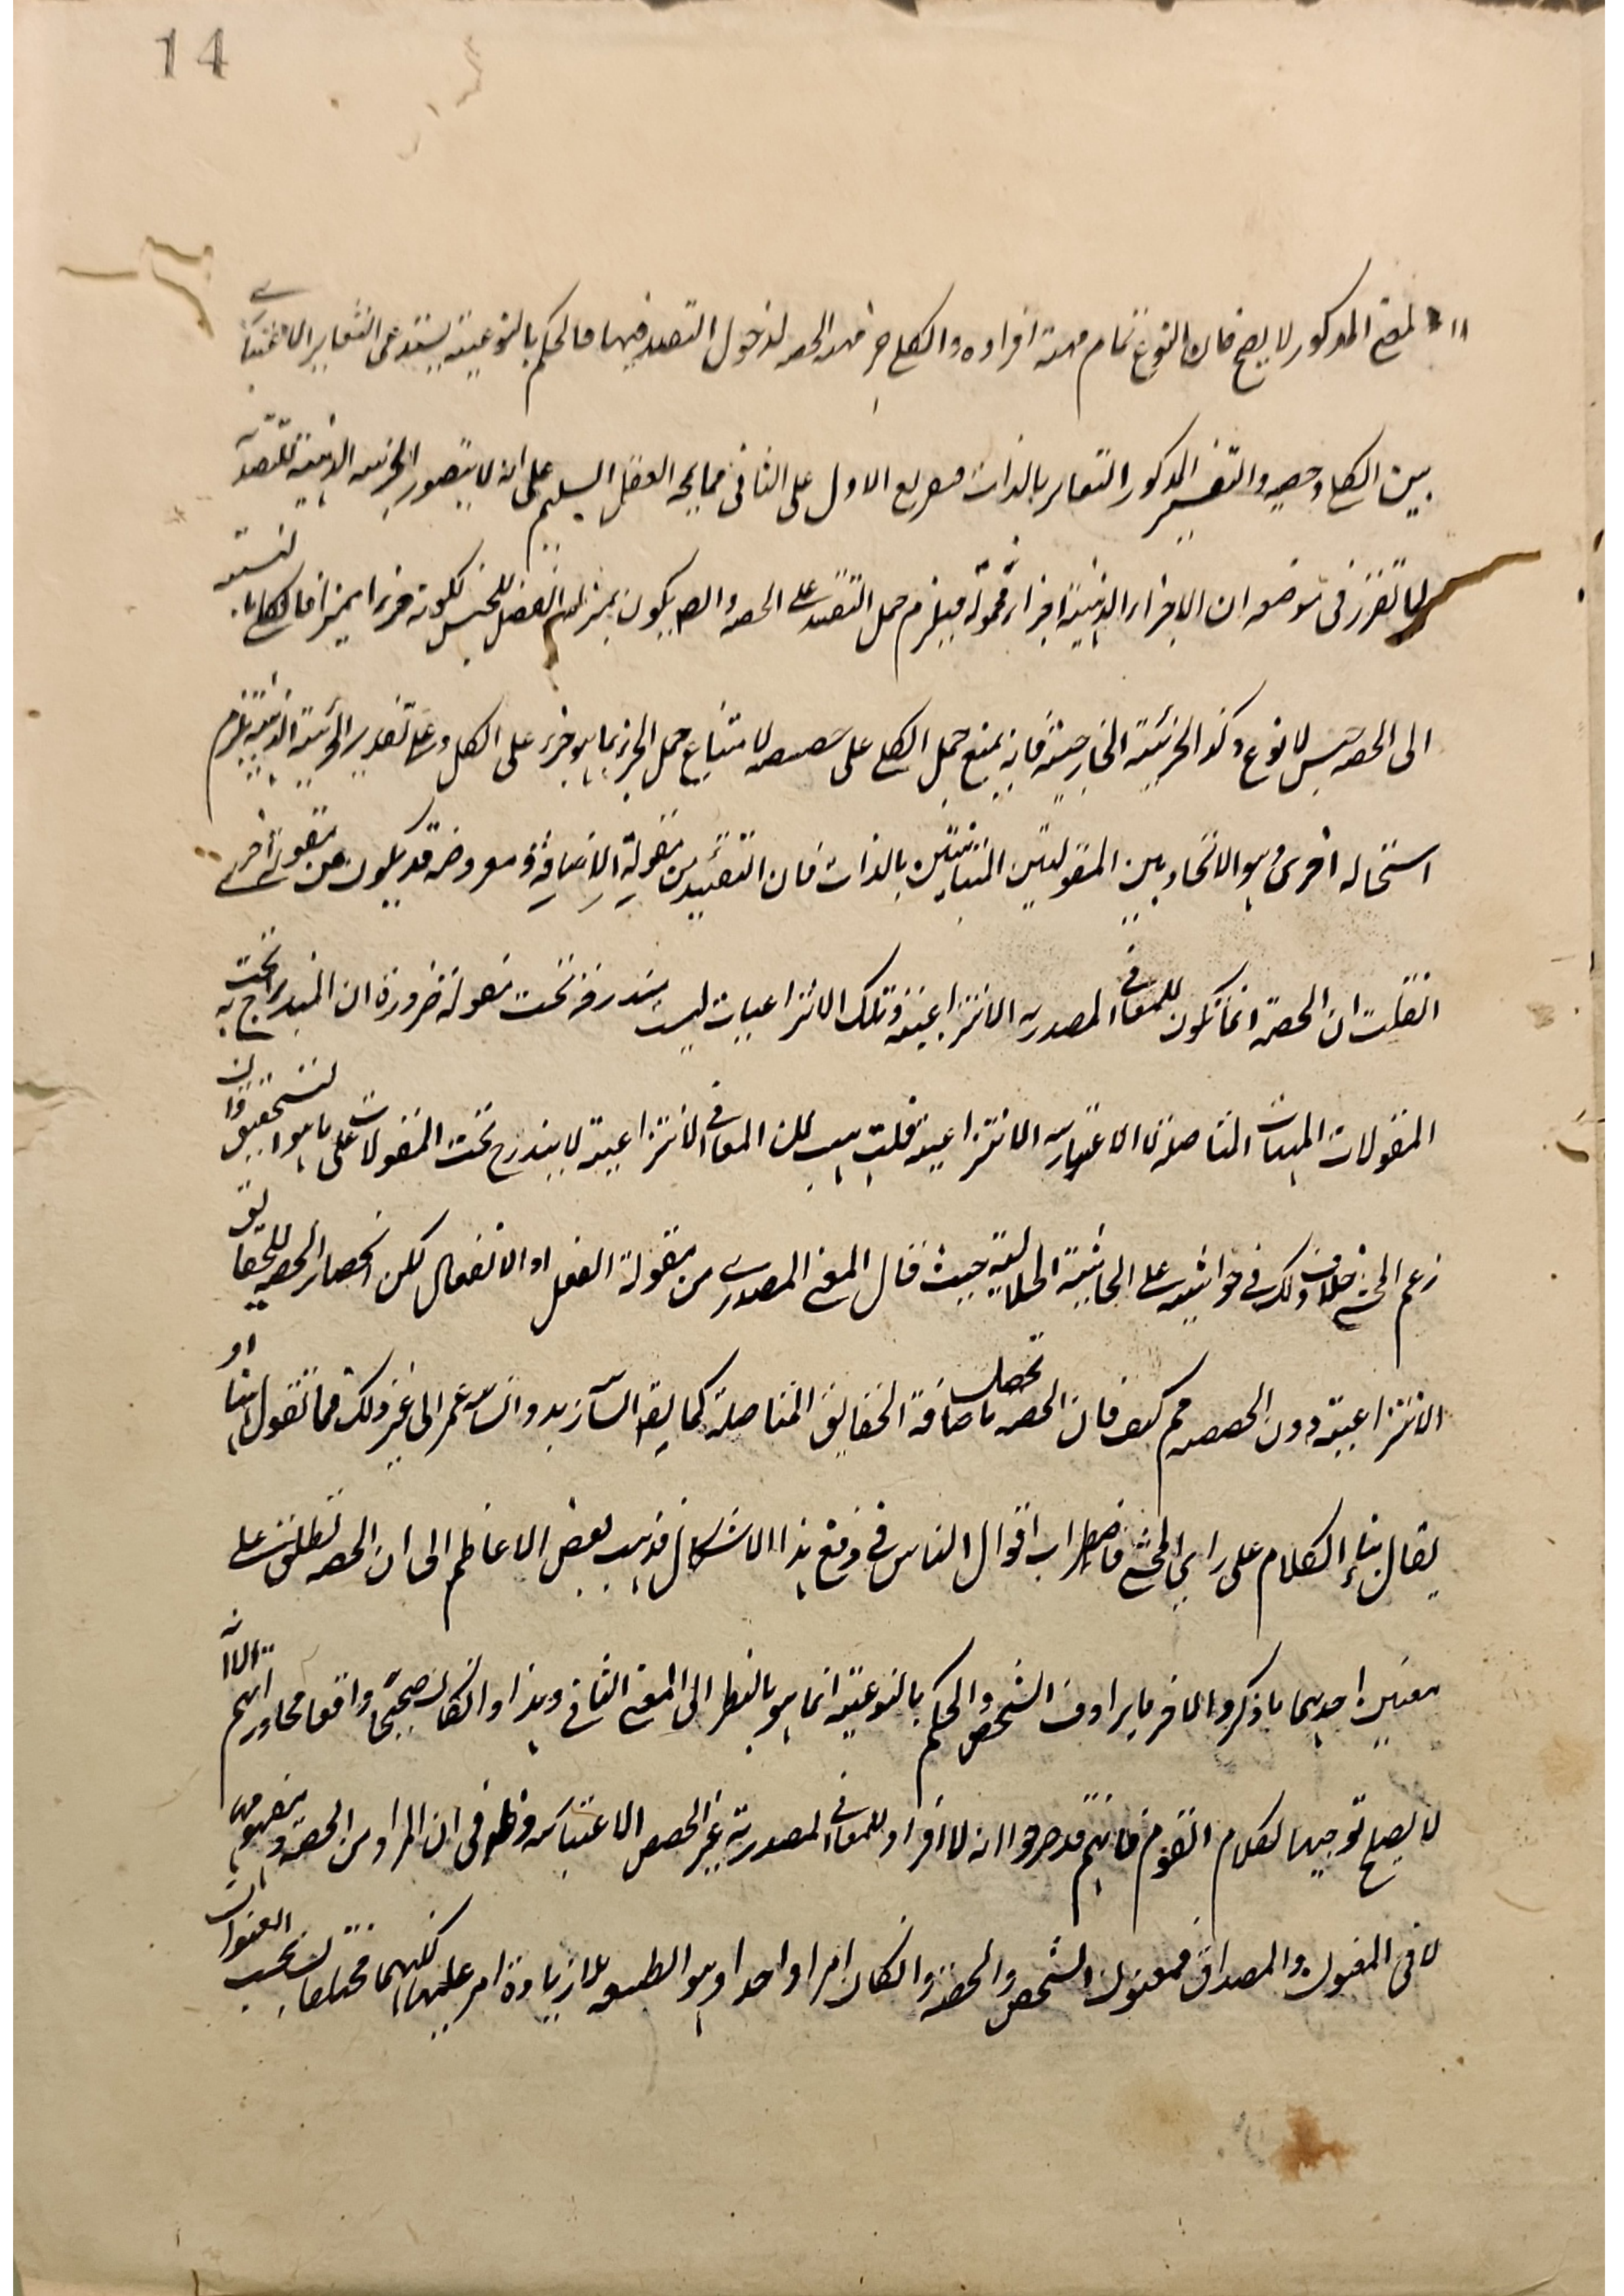 14
بالمعنى المذكور لا يصح فان النوع تمام مهية افراده والكلي جزء لهذه الحصة لدخول التقييد فيها فالحكم بالنوعية يستدعى التغاير الاعتبارى
بين الكلى وحصصه والتفسير المذكور التغاير بالذات وتفريع الاول على الثانى مما يمجه العقل السليم على انه لا يتصور الجزئية الذهنية للتقييد
لما تقرر فى موضعه ان الاجزاء الذهنية اجزاء محمولة فيلزم حمل التقييد على الحصة وايضا يكون بمنزلة الفصل للجنس لكونه جزءا مميزا فالكلى بالنسبة
الى الحصة جنس لا نوع وكذا الجزئية الخارجية فانه يمنع حمل الكلى على حصصه لامتناع حمل الجزء بما هو جزء على الكل وعلى تقدير الجزئية الذهنية يلزم
استحالة اخرى وهو الاتحاد بين المقولتين المتباينتين بالذات فان التقييد من مقولة الاضافة ومعروضه قد يكون من مقولة اخرى
ان قلت ان الحصة انما تكون للمعانى المصدرية الانتزاعية وتلك الانتزاعيات ليست بمندرجة تحت مقولة ضرورة ان المندرج تحت
المقولات المهيات المتاصلة لا الاعتبارية الانتزاعية قلت هب ان المعانى الانتزاعية لا يندرج تحت المقولات على ما هو التحقيق وان
زعم المحشى خلاف ذلك فى حواشيه على الحاشية الجلالية حيث قال المعنى المصدرى من مقولة الفعل او الانفعال لكن انحصار الحصة للحقايق
الانتزاعية دون الحصص مم كيف فان الحصة تحصل باضافة الحقايق المتاصلة كما يقال انسان زيد وانسان عمر الى غير ذلك مما تقول او
يقال بناء الكلام على راى المحشى فاضطراب اقوال الناس فى دفع هذا الاشكال فذهب بعض الاعاظم الى ان الحصة تطلق على
معنيين احدهما ما ذكر والاخر ما يرادف الشخص والحكم بالنوعية انما هو بالنظر الى المعنى الثانى وهذا وان كان صحيحا واقعا فى محاوراتهم الا انه
لا يصلح توجيها لكلام القوم فانهم قد صرحوا انه لا افراد للمعانى المصدرية غير الحصص الاعتبارية وظاهر فى ان المراد من الحصة مفهومها
لا فى المعنون والمصداق فمعنون الشخص والحصة وان كان امرا واحدا وهو الطبيعة بلا زيادة امر عليها لكنهما مختلفان بحسب العنوان